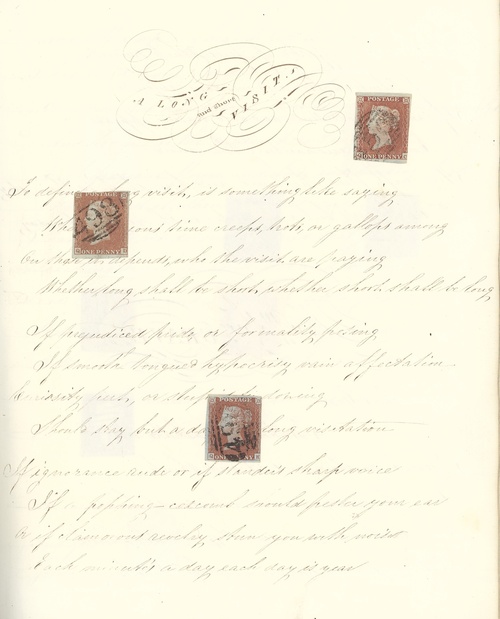 A LONG and short VISIT.
POSTAGE
ONE PENNY
To define a long visit, is something like saying
498
ONE PENNY
time creeps, trots, or gallops among
depends, who the visit are paying
Whether long shall be short, whether short shall be long
If prejudiced pride or formality prosing
If smooth tongued hypocrisy vain affectation
POSTAGE
ONE PENNY
Should stay but a day long visitation
If ignorance rude or if slander's sharp voice
If a coxcomb should pester your ear
or if clamorous revelry stun you with noise
Each minute's a day each day is year